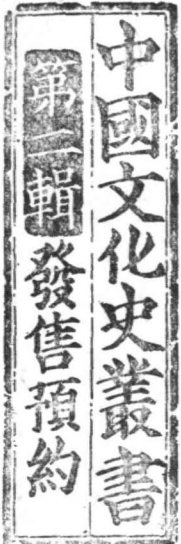 中國文化史叢書
第二輯發售預約